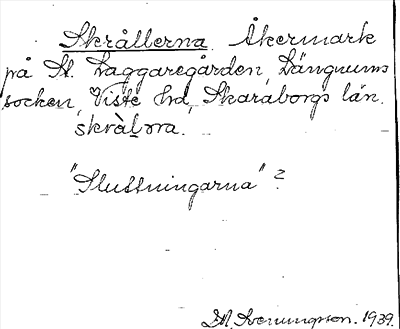 Skrållerna. Åkermark
på St. Laggaregården, Längnums
socken, Viste hd, Skaraborgs län.
skràḷna.
"Sluttningarna"?
Sveningson. 1939.